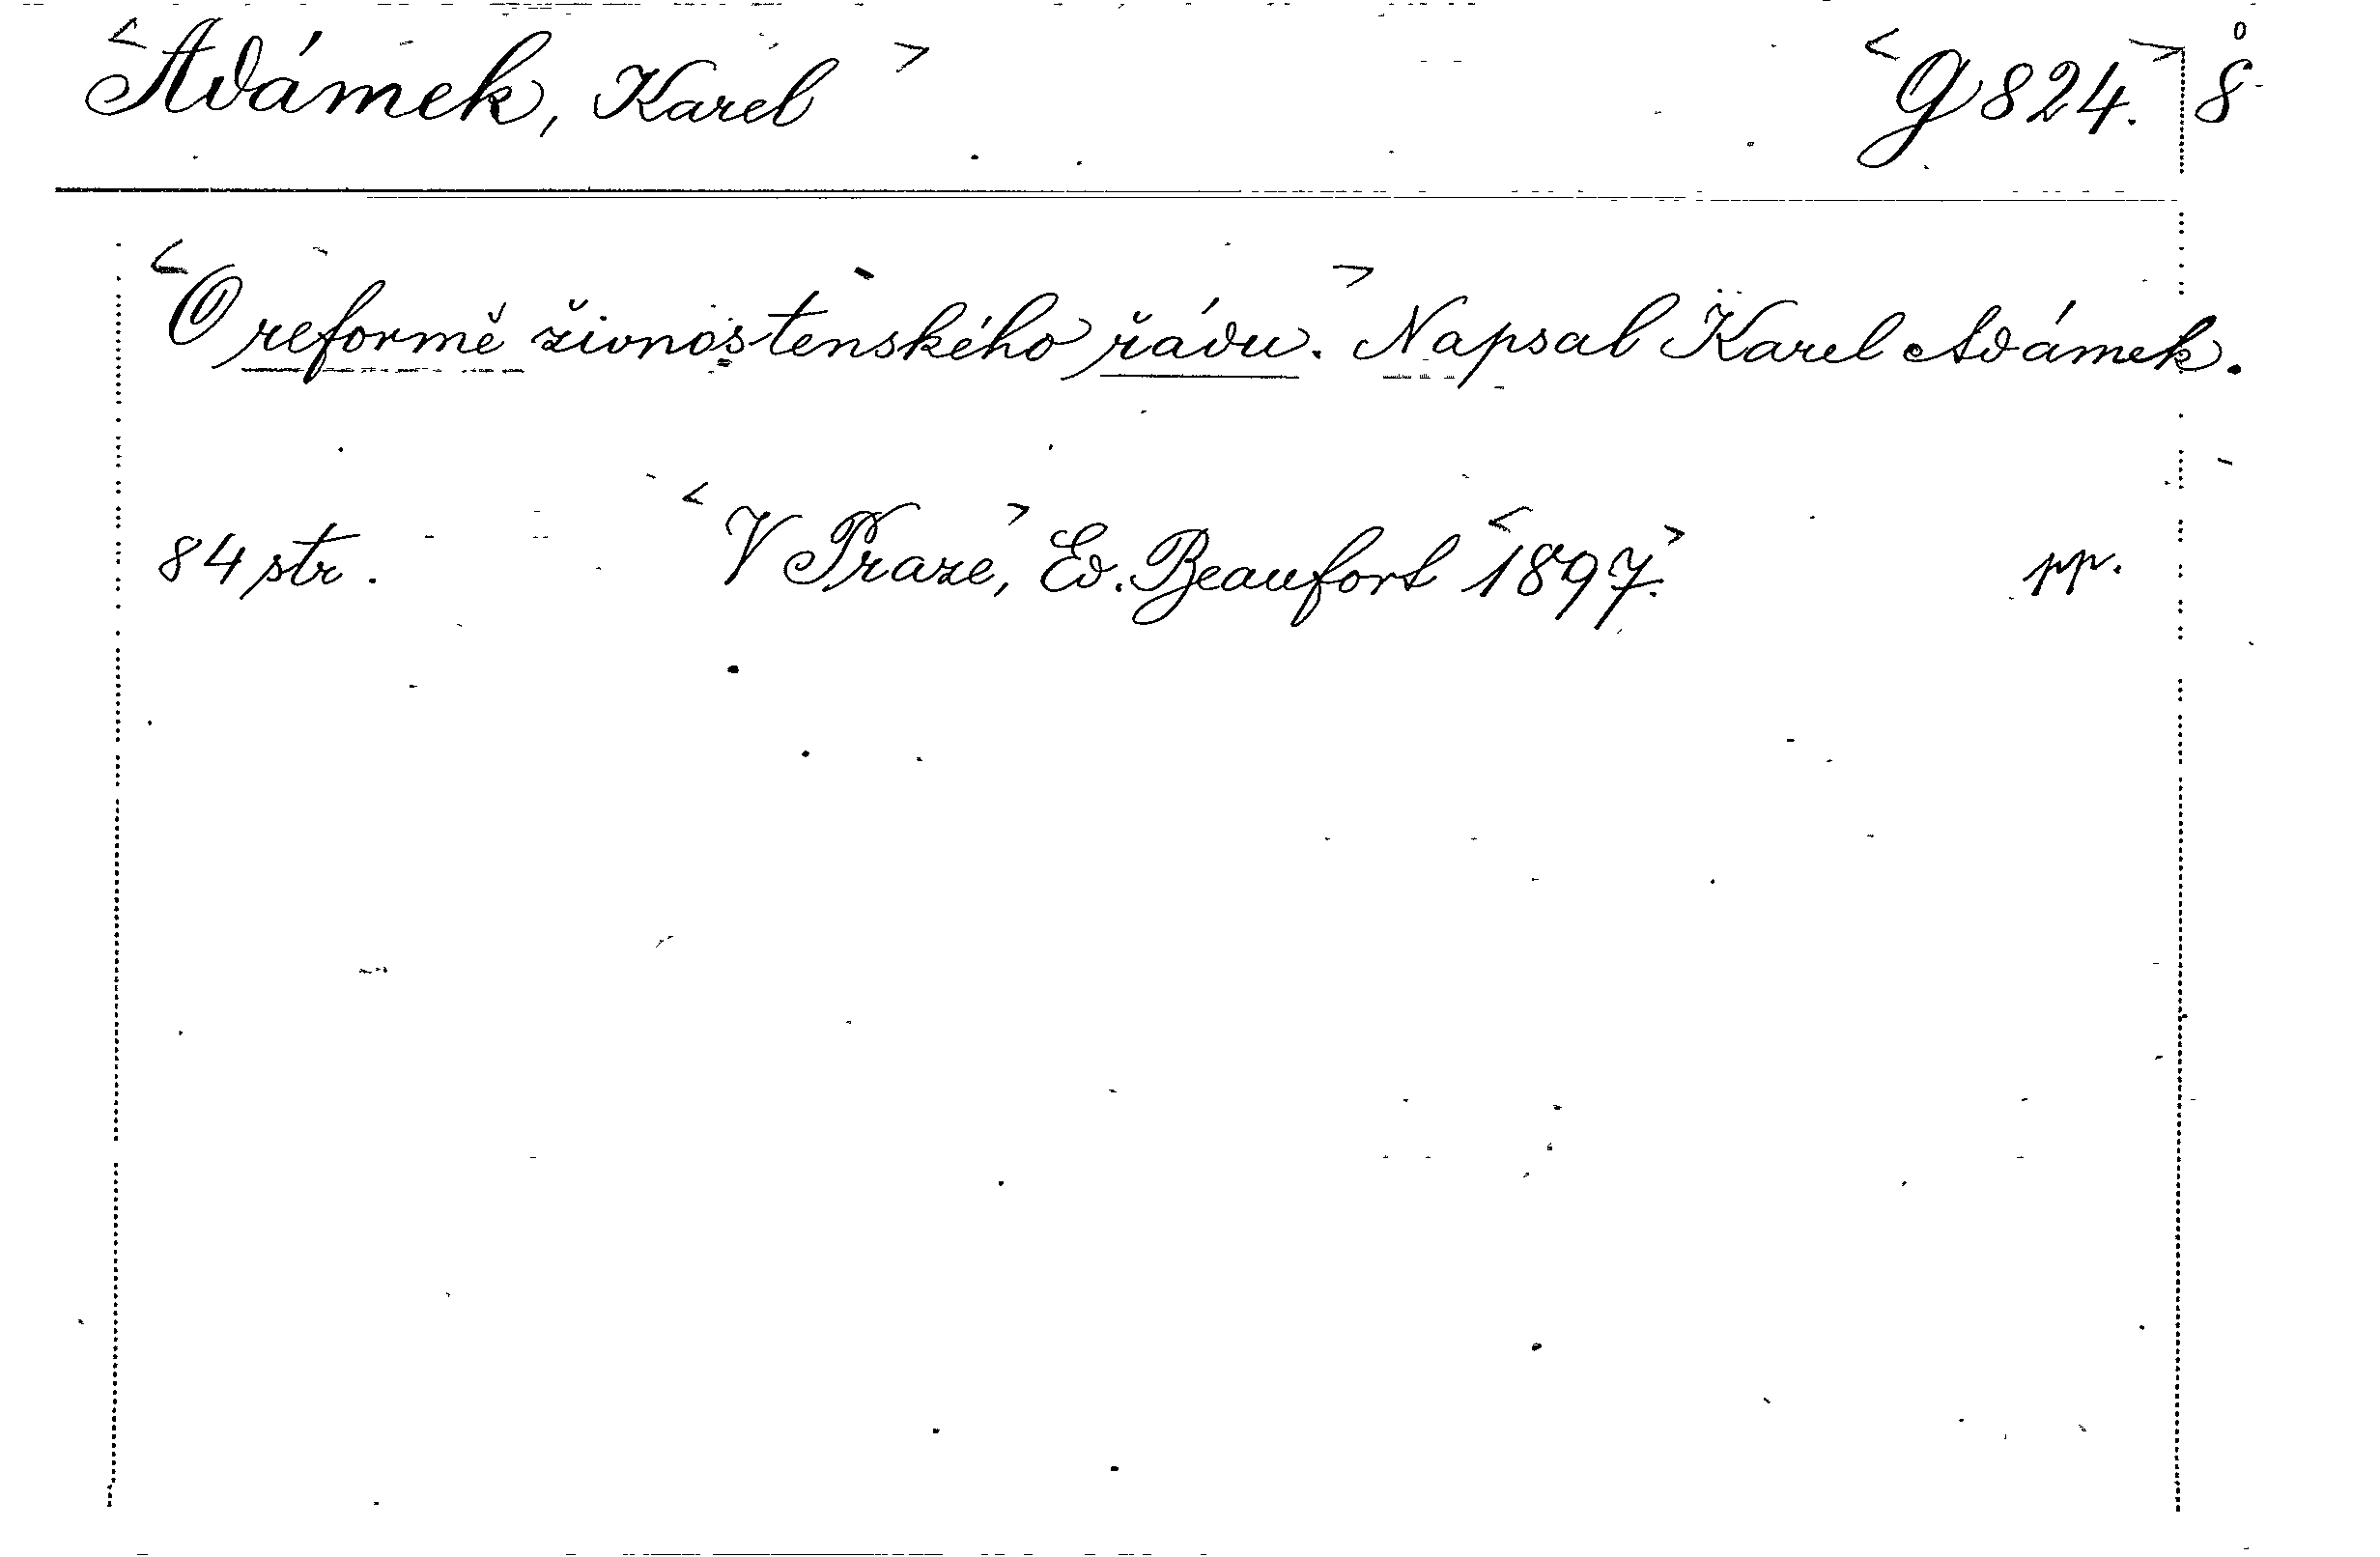 <Adámek, Karel> <G 824.> 8°
<O reformě živnostenského řádu.> Napsal Karel Adámek.
84 str. <V Praze,> Ed. Beaufort <1897.> pp.